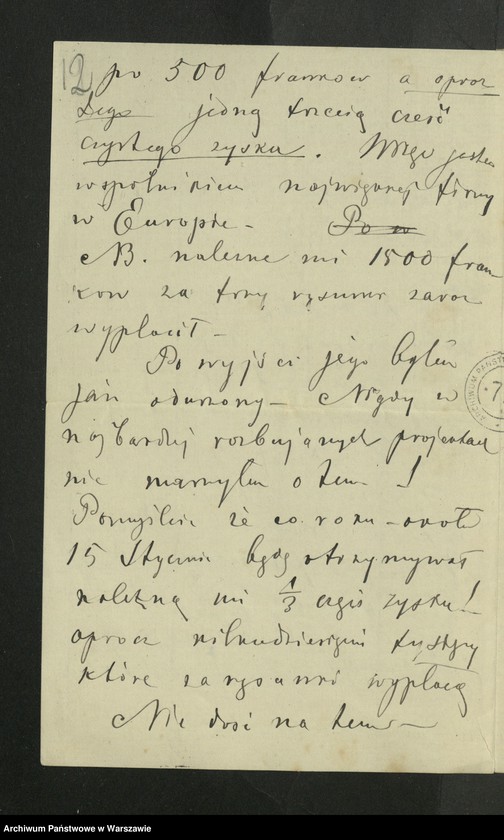 12
po 500 franków a oprócz
tego jedną trzecią część
czystego zysku. Więc jestem
wspólnikiem największej firmy
w Europie –
Po w
NB. należne mi 1500 fran-
ków za trzy rysunki zaraz
wypłacił –
Po wyjściu jego byłem
jak odurzony – Nigdy w
najbardziej rozbujanych projektach
nie marzyłem o tem!
Pomyślcie że co roku – około
15 Stycznia będę otrzymywał
należną mi 1/3 część zysku!
oprócz kilkudziesięciu tysięcy
które za rysunki wypłacą
Nie dość na tem –
ARCHIWUM PAŃSTW
7
Archiwum Państwowe w Warszawie